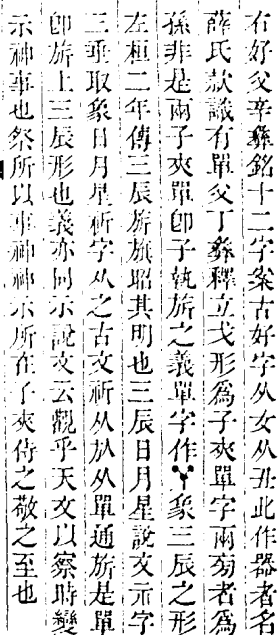 右好父辛彝銘十二字案古好字从女从丑此作器者名
薛氏款識有單父丁彝釋立戈形爲子夾單字兩旁者爲
孫非是兩子夾單卽子執旂之義單字作象三辰之形
左桓二年傳三辰旂旗昭其明也三辰日月星說文示字
三垂取象日月星祈字从之古文祈从㫃从單通旂是單
卽旂上三辰形也義亦同示說文云觀乎天文以察時變
示神事也祭所以事神神示所在子夾侍之敬之至也